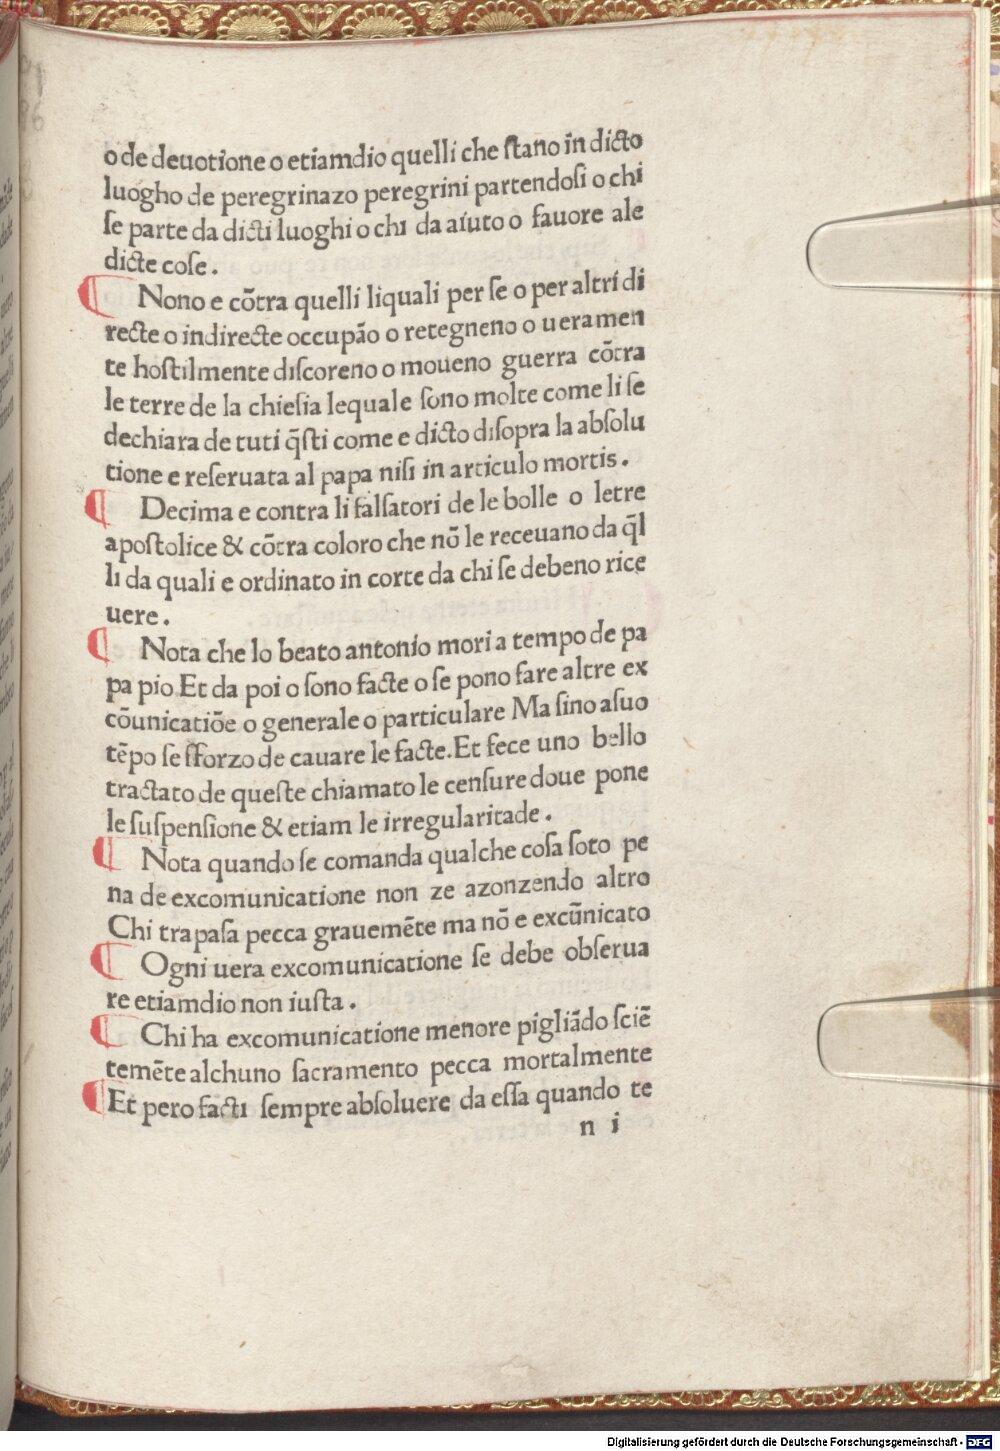 o de deuotione o etiamdio quelli che ſtano in dicto
luogho de peregrinazo peregrini partendoſi o chi
ſe parte da dicti luoghi o chi da aiuto o fauore ale
dicte coſe .
¶ Nono e cõtra quelli liquali per ſe o per altri di
recte o indirecte occupão o retegneno o ueramen
te hoſtilmente diſcoreno o moueno guerra cõtra
le terre de la chieſia lequale ſono molte come li ſe
dechiara de tuti q̃ſti come e dicto diſopra la abſolu
tione e reſeruata al papa niſi in articulo mortis .
¶ Decima e contra li falſatori de le bolle o letre
apoſtolice & cõtra coloro che nõ le receuano da q̃l
li da quali e ordinato in corte da chi ſe debeno rice
uere .
¶ Nota che lo beato antonio mori a tempo de pa
pa pio Et da poi o ſono facte o ſe pono fare altre ex
cõunicatiõe o generale o particulare Ma ſino a ſuo
tẽpo ſe ſforzo de cauare le facte. Et fece uno bello
tractato de queſte chiamato le cenſure doue pone
le ſuſpenſione & etiam le irregularitade .
¶ Nota quando ſe comanda qualche coſa ſoto pe
na de excomunicatione non ze azonzendo altro
Chi trapaſa pecca grauemẽte ma nõ e excũnicato
¶ Ogni uera excomunicatione ſe debe obſerua
re etiamdio non iuſta .
¶ Chi ha excomunicatione menore pigliãdo ſciẽ
temẽte alchuno ſacramento pecca mortalmente
¶ Et pero facti ſempre abſoluere da eſſa quando te
n i
Digitalisierung gefördert durch die Deutsche Forschungsgemeinschaft - DFG